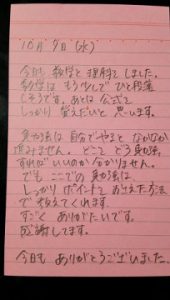 10月9日(水)
今日も 数学と 理科をしました。
数学は もう少しで ひと段落
しそうです。あとは 公式を
しっかり 覚えたいと 思います。
勉強法は 自分でやると なかなか
進みません。どこを どう勉強
すればいいのか 分かりません。
でも ここでの 勉強法は
しっかり ポイントを おさえた方法
で 教えてくれます。
すごく ありがたいです。
感謝してます。
今日も ありがとうございました。